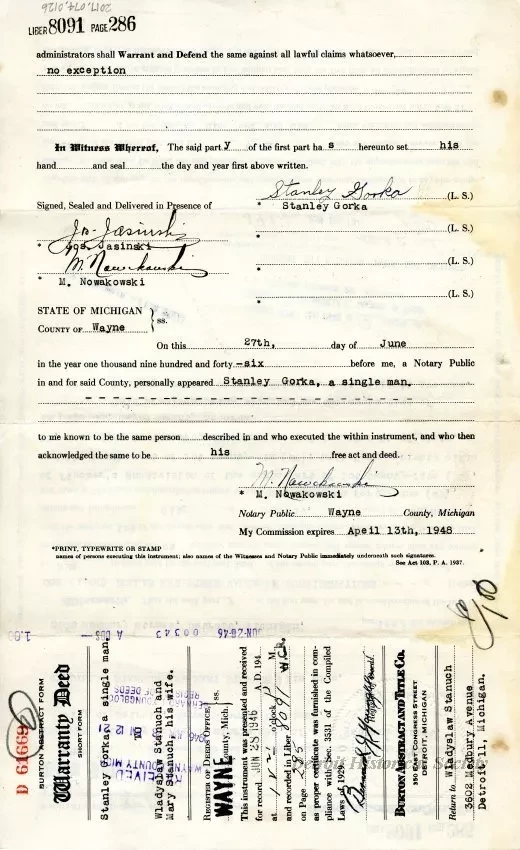 2017.074.0126
LIBER 8091 PAGE 286
administrators shall Warrant and Defend the same against all lawful claims whatsoever,
no exception
In Witness Whereof, The said part y of the first part ha s hereunto set his
hand and seal the day and year first above written.
Stanley Gorka (L. S.)
Signed, Sealed and Delivered in Presence of * Stanley Gorka
Jos. Jasinski (L. S.)
* Jos. Jasinski *
M. Nowakowski (L. S.)
* M. Nowakowski *
(L. S.)
STATE OF MICHIGAN } ss. *
COUNTY OF Wayne
On this 27th, day of June
in the year one thousand nine hundred and forty -six before me, a Notary Public
in and for said County, personally appeared Stanley Gorka, a single man.
to me known to be the same person described in and who executed the within instrument, and who then
acknowledged the same to be his free act and deed.
M. Nowakowski
* M. Nowakowski
Notary Public Wayne County, Michigan
My Commission expires April 13th, 1948
*PRINT, TYPEWRITE OR STAMP
names of persons executing this instrument; also names of the Witnesses and Notary Public immediately underneath such signatures.
See Act 103, P. A. 1937.
1/00
JUN-28-46 00543 A 1.00
BURTON ABSTRACT FORM
Warranty Deed
SHORT FORM
Stanley Gorka, a single man.
TO
Wladyslaw Stanuch and
Mary Stanuch, his wife.
REGISTER OF DEEDS OFFICE, } ss.
WAYNE County, Mich.
This instrument was presented and received
for record JUN 28 1946 A. D. 194
at o'clock P M.
and recorded in Liber 8091
on Page 285
as proper certificate was furnished in com-
pliance with Sec. 3531 of the Compiled
Laws of 1929.
BURTON ABSTRACT AND TITLE CO.
350 EAST CONGRESS STREET
DETROIT, MICHIGAN
Return to Wladyslaw Stanuch
3602 Medbury Avenue
Detroit 11, Michigan.
Detroit Historical Society